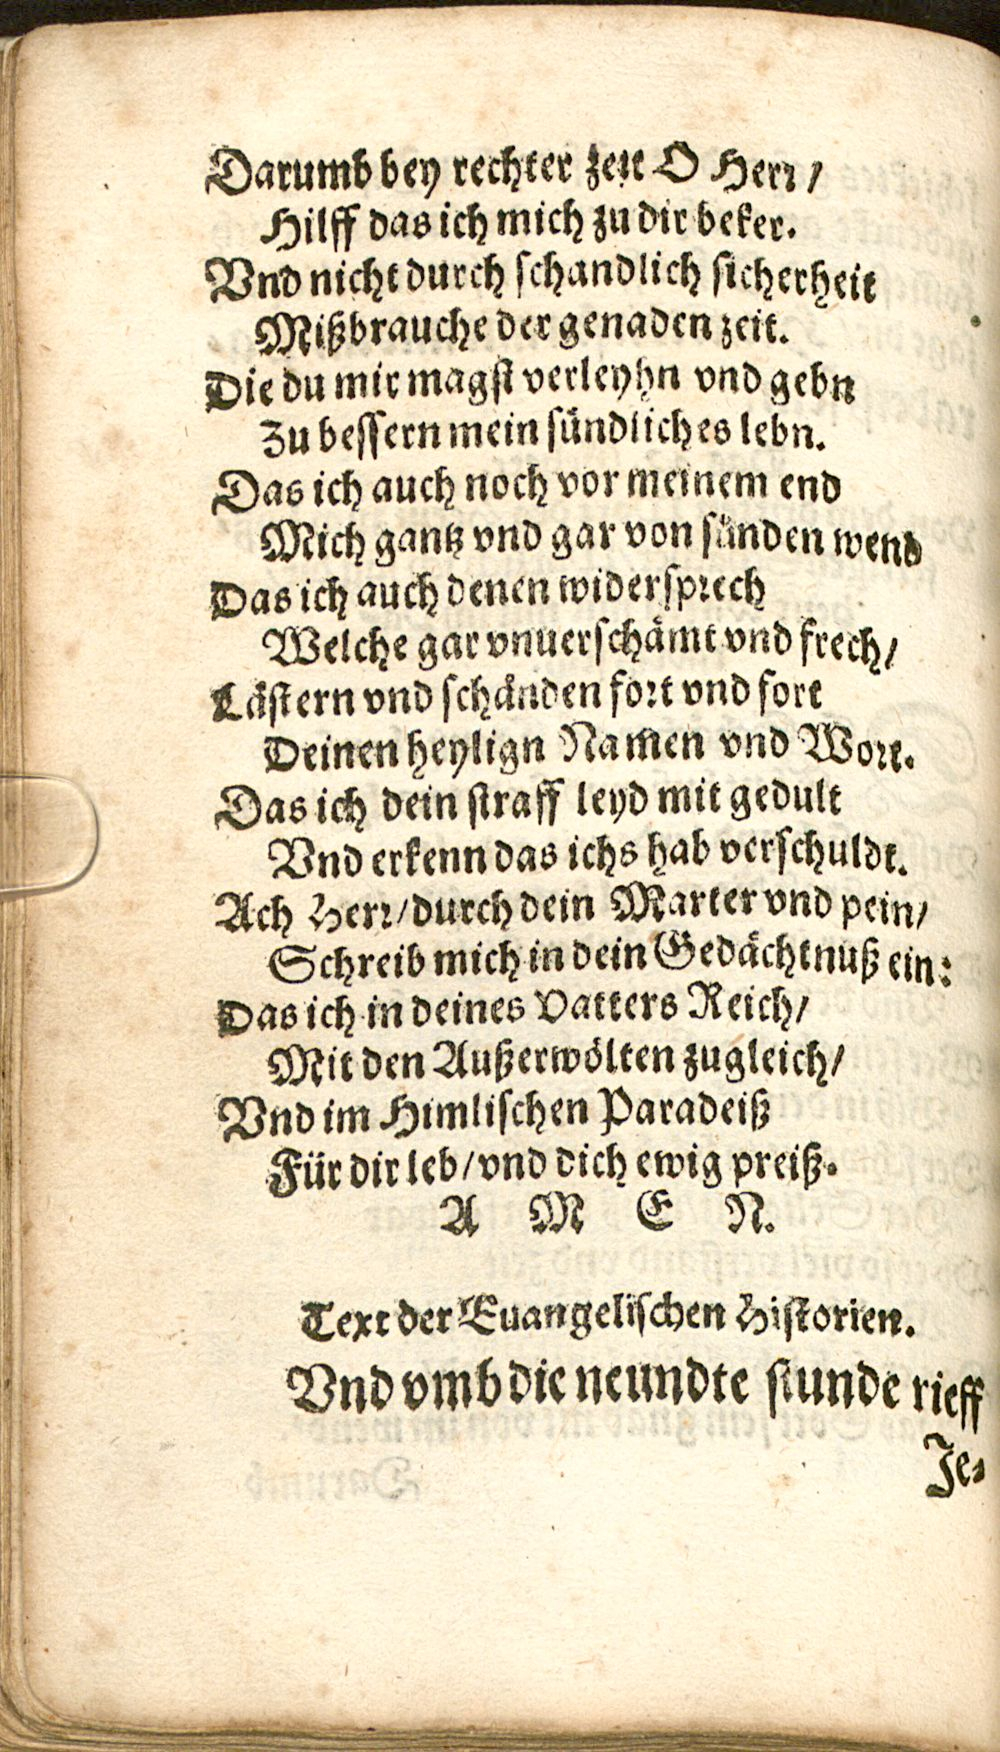 Darumb bey rechter zeit O Herr /
Hilff das ich mich zu dir beker.
Vnd nicht durch schandlich sicherheit
Mißbrauche der genaden zeit.
Die du mir magst verleyhn vnd gebn
Zu bessern mein sündliches lebn.
Das ich auch noch vor meinem end
Mich gantz vnd gar von sünden wend
Das ich auch denen widersprech
Welche gar vnuerschämt vnd frech /
Lästern vnd schänden fort vnd fort
Deinen heylign Namen vnd Wort.
Das ich dein straff leyd mit gedult
Vnd erkenn das ichs hab verschuldt.
Ach Herr / durch dein Marter vnd pein /
Schreib mich in dein Gedächtnuß ein:
Das ich in deines Vatters Reich /
Mit den Außerwölten zugleich /
Vnd im Himlischen Paradeiß
Für dir leb / vnd dich ewig preiß.
A M E N.
Text der Euangelischen Historien.
Vnd vmb die neundte stunde rieff
Je-